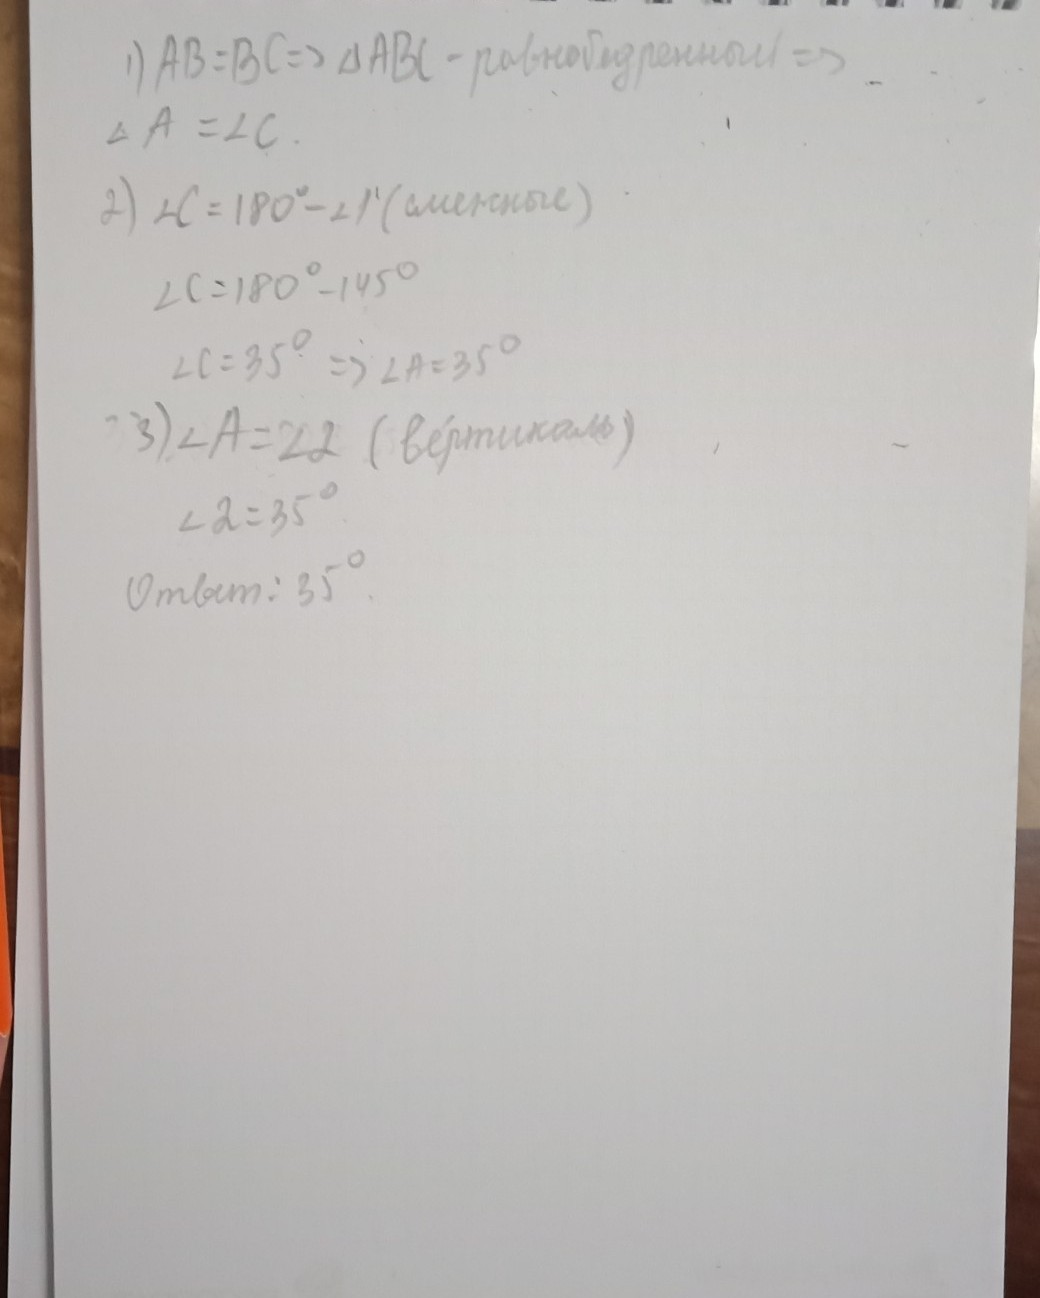 1) AB=BC=> △ABC - равнобедренный =>
∠A =∠C.
2) ∠C=180°-∠1 (смежные)
∠C=180°-145°
∠C=35° => ∠A=35°
3) ∠A=∠2 (вертикаль)
∠2=35°
Ответ: 35°.